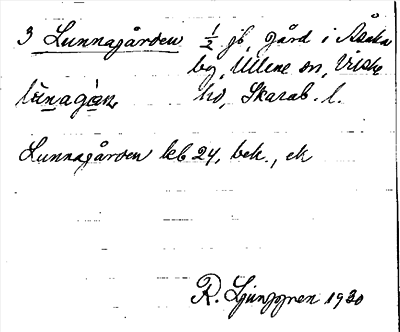 3 Lunnagården 1/2 jb, gård i Åsaka
by, Ullene sn, Viste
hd, Skarab. l.
Lunnagården leb 24, bek., ek
R. Ljunggren 1930